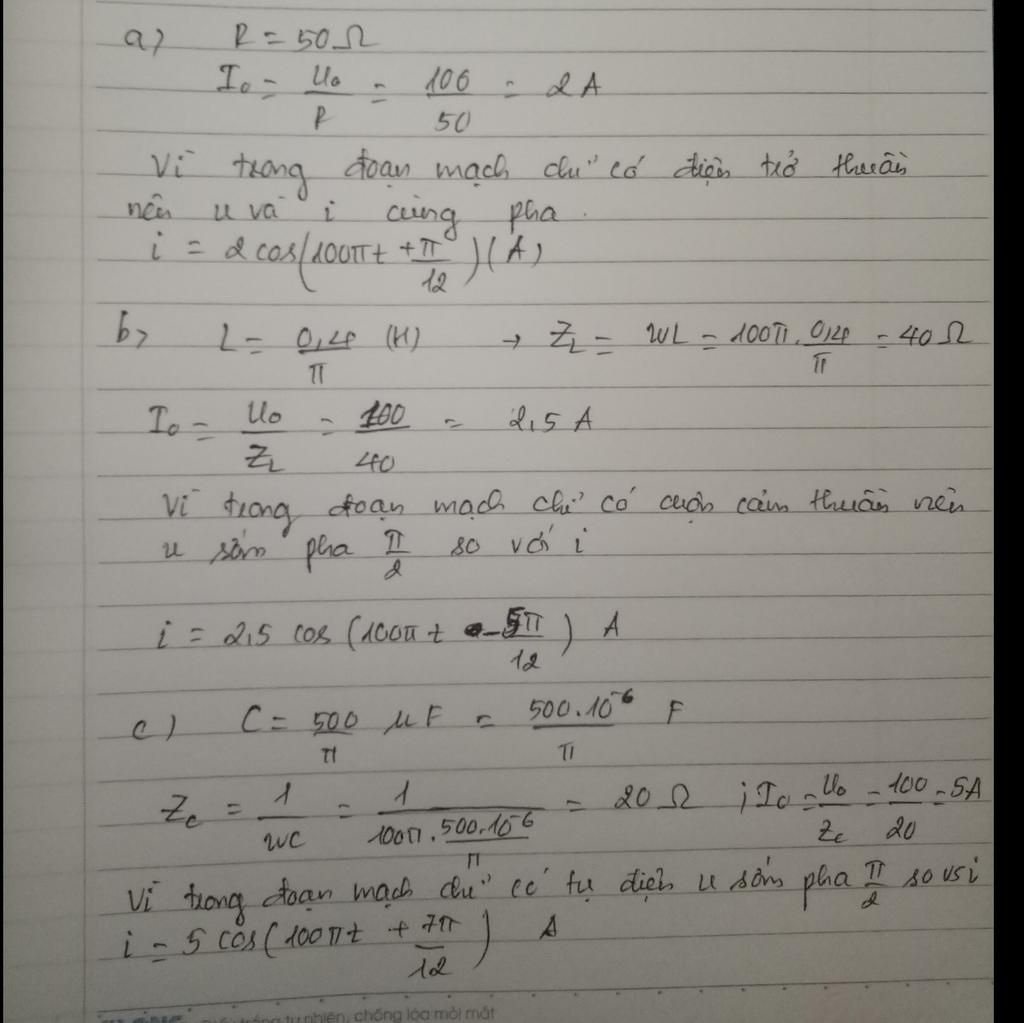 a) R = 50Ω
I₀ = U₀/R = 100/50 = 2 A
Vì trong đoạn mạch chỉ có điện trở thuần
nên u và i cùng pha.
i = 2 cos(100πt + π/12) (A)
b) L = 0,4/π (H) → Z_L = ωL = 100π . 0,4/π = 40 Ω
I₀ = U₀/Z_L = 100/40 = 2,5 A
Vì trong đoạn mạch chỉ có cuộn cảm thuần nên
u sớm pha π/2 so với i
i = 2,5 cos (100πt - 5π/12) A
c) C = 500/π μF = 500.10⁻⁶/π F
Z_C = 1/ωC = 1/(100π . 500.10⁻⁶/π) = 20 Ω ; I₀ = U₀/Z_C = 100/20 = 5A
Vì trong đoạn mạch chỉ có tụ điện u sớm pha π/2 so vs i
i = 5 cos(100πt + 7π/12) A
trắng tự nhiên, chống lóa mỏi mắt